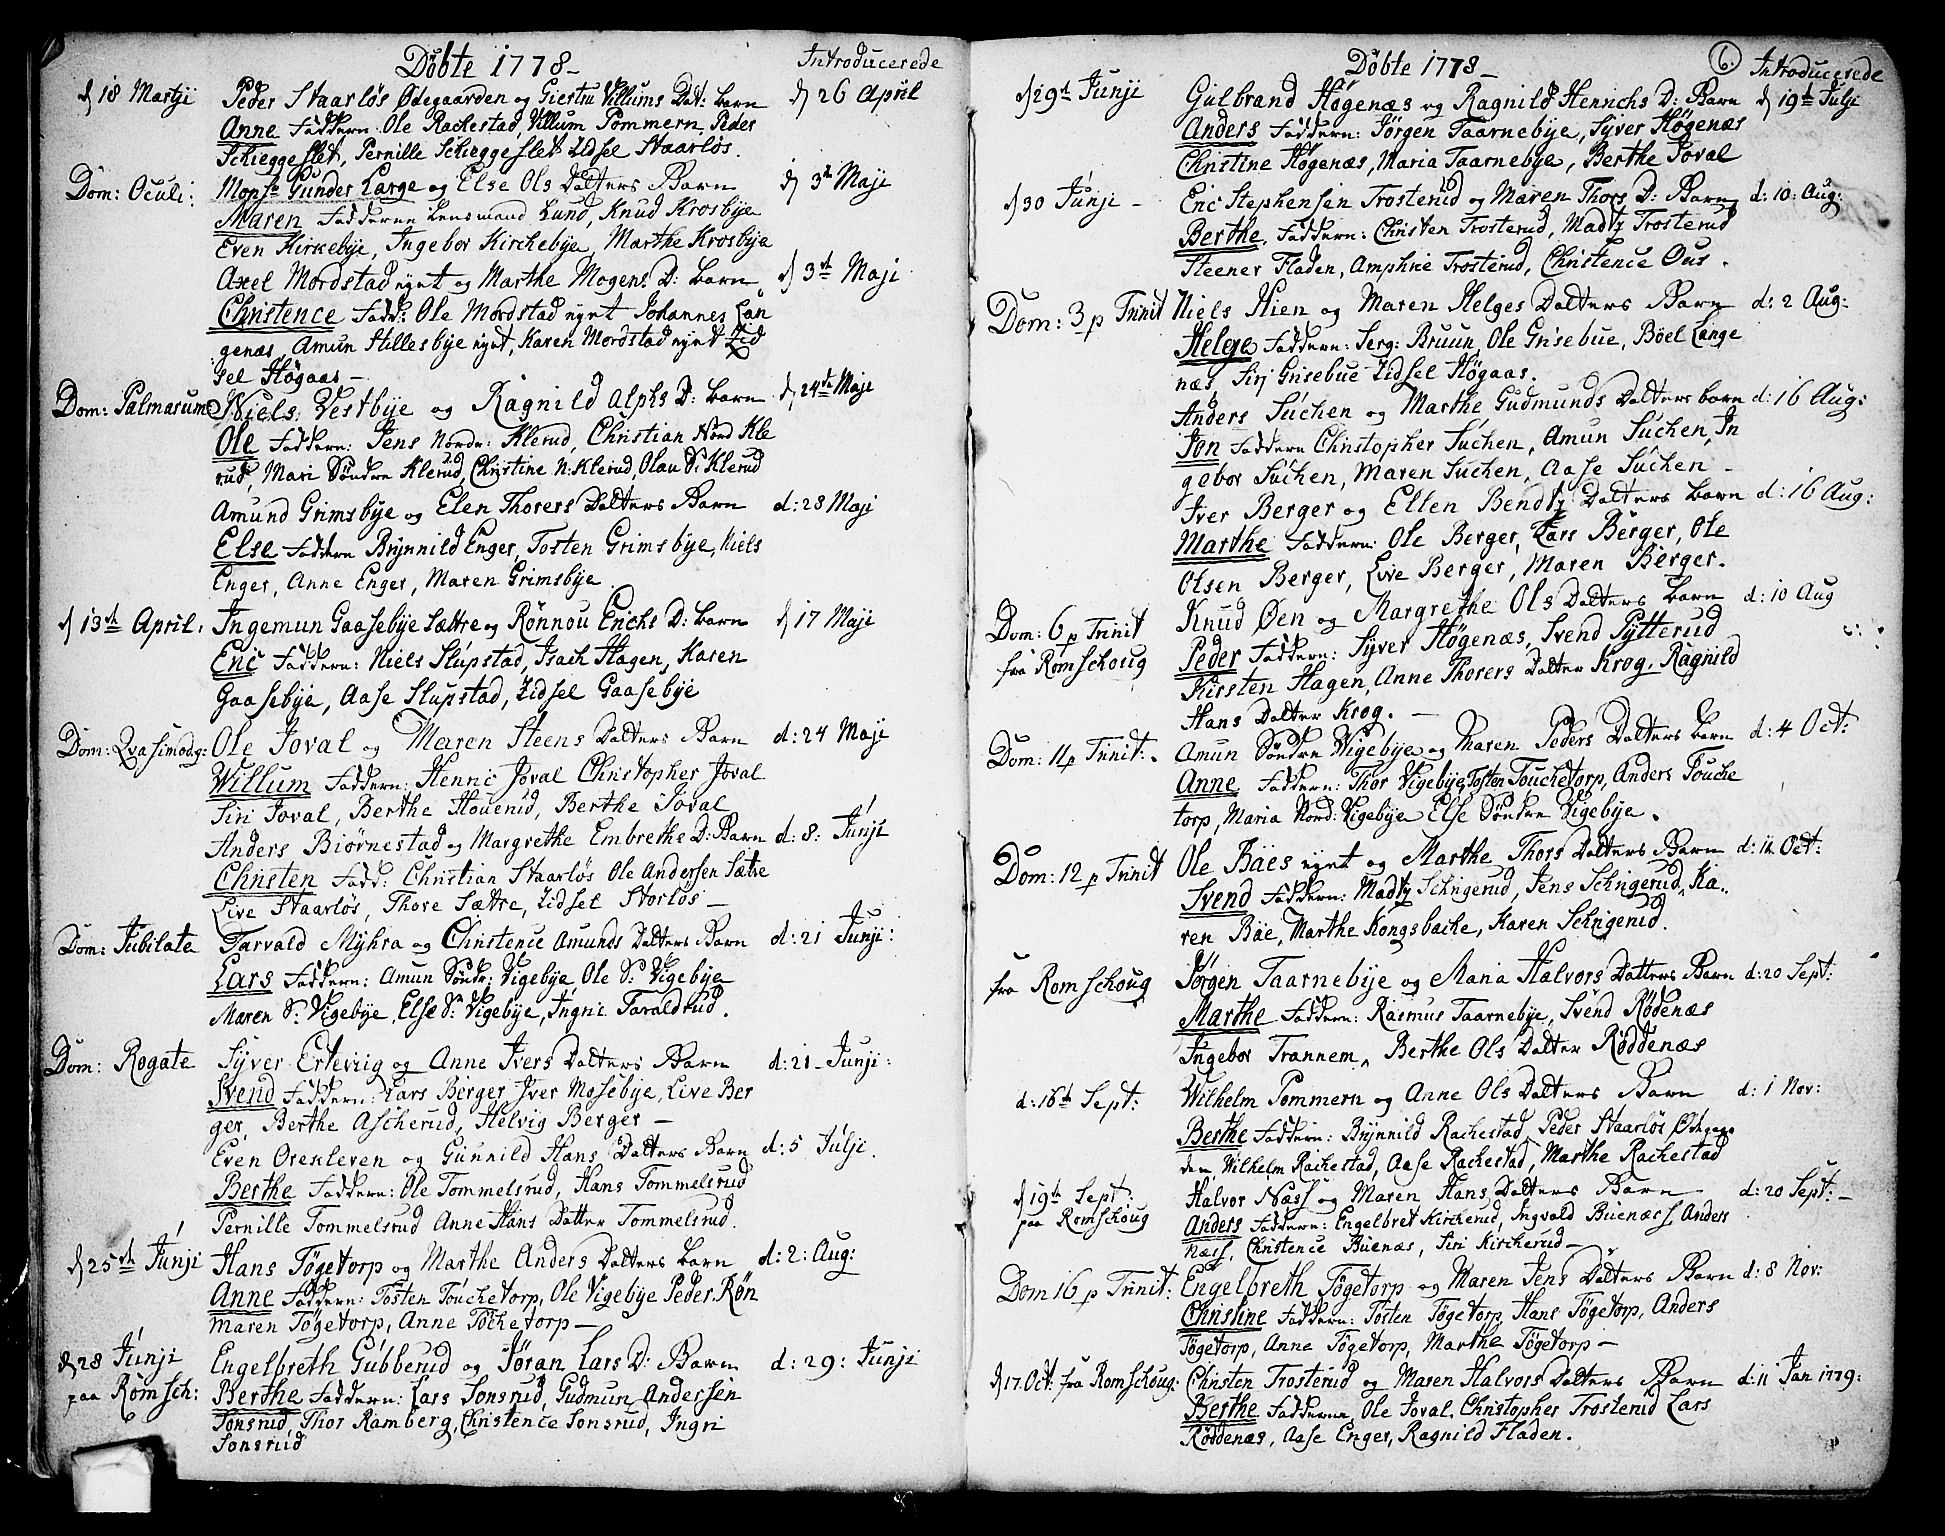 Döbte 1778 - Introducerede
d 18 Martji Peder Staarlös Ødegaarden og Giertru Villums Dat: Barn d 26 April
Anne Faddern. Ole Rackestad, Villum Pommern, Peder
Schieggeslet, Pernille Schieggeslet Zidsel Staarlös.
Dom: Oculi: Monsr Gunder Large og Else Ols Datters Barn d 3de Maji
Maren Fadderne Lensmand Lund, Knud Krosbye
Even Kirkebye, Ingebor Kirckebye, Marthe Krosbye
Axel Mordstad eyet og Marthe Mogens D: Barn d 3de Maji
Christence Fadd: Ole Mordstad eyet Johannes Lan
genæs, Amun Hillesbye eyet, Karen Mordstad eyet Zid
sel Högaas -
Dom: Palmarum Niels Vestbye og Ragnild Alphs D: Barn d 24de Maji
Ole Faddern: Jens Nordr: Klerud, Christian Nord Kle
rud, Mari Söndre Klerud, Christine N: Klerud, Olau S: Klerud
Amund Grimsbye og Elen Thorers Datters Barn d: 28 Maji
Else Faddern Brynnild Enger, Tosten Grimsbye, Niels
Enger, Anne Enger, Maren Grimsbye
d 13de April. Ingemun Gaasebye Sættre og Rönnou Erichs D: Barn d 17 Maji
Eric Faddern: Niels Slupstad, Isach Hagen, Karen
Gaasebye, Aase Slupstad, Zidsel Gaasebye
Dom: Qvasimodg: Ole Joval og Maren Steens Datters Barn d: 24 Maji
Willum Faddern: Henric Joval Christopher Joval
Siri Joval, Berthe Houerud, Berthe Joval
Anders Biörnestad og Margrethe Embreths D: Barn d: 8: Junji
Christen Fadd: Christian Staarlös Ole Andersen Sætre
Live Staarlös, Thore Sættre, Zidsel Storlös -
Dom: Jubilate Tarvald Myhra og Christence Amunds Datters Barn d: 21 Junji:
Lars Faddern: Amun Söndr: Vigebye Ole S: Vigebye
Maren S: Vigebye, Else S: Vigebye, Ingri Taraldrud.
Dom: Rogate Syver Ertevig og Anne Ivers Datters Barn d: 21 - Junji:
Svend Faddern: Lars Berger Iver Mosebye, Live Ber
ger, Berthe Ascherud, Helvig Berger -
Even Orekleven og Gunnild Hans Datters Barn d: 5 Julji.
Berthe Faddern: Ole Tommelsrud, Hans Tommelsrud
Pernille Tommelsrud Anne Hans Datter Tommelsrud.
d 25de Junji Hans Tögetorp og Marthe Anders Datters Barn d: 2: Aug:
Anne Faddern: Tosten Touchetorp, Ole Vigebye Peder Rön
Maren Tögetorp, Anne Töchetorp -
d 28 Junji Engelbreth Gubberud og Jöran Lars D: Barn d: 29: Junji
paa Römsch: Berthe Faddern: Lars Sonsrud, Gudmun Andersen
Sonsrud, Thor Ramberg, Christence Sonsrud, Ingri
Sonsrud
Döbte 1778 - 6. Introducerede
d 29de Junji Gulbrand Högenæs og Ragnild Henrichs D: Barn d 19de Julji
Anders Faddern: Jörgen Taarnebye, Syver Högenæs
Christine Högenæs, Maria Taarnebye, Berthe Joval
d 30 Junji - Eric Stephensen Trosterud og Maren Thors D: Barn d: 10: Aug:
Berthe. Faddern: Christen Trosterud, Madtz Trosterud
Steener Fladen, Amphrie Trosterud, Christence Ous.
Dom: 3 p Trinit Niels Hien og Maren Helges Datters Barn d: 2 Aug:
Helge Faddern: Serg: Bruun, Ole Grisebue, Böel Lange
næs, Siri Grisebue Zidsel Högaas.
Anders Suchen og Marthe Gudmunds Datters barn d: 16 Aug:
Jon Faddern Christopher Suchen, Amun Suchen, In
gebor Suchen, Maren Suchen, Aase Suchen -
Iver Berger og Ellen Bendtz Datters Barn d: 16 Aug:
Marthe Faddern: Ole Berger, Lars Berger, Ole
Olsen Berger, Live Berger, Maren Berger.
Dom: 6 p Trinit Knud Øen og Margrethe Ols Datters Barn d: 10 Aug
fra Römschoug Peder Faddern: Syver Högenæs, Svend Pytterud
Kirsten Hagen, Anne Thorers Datter Krog. Ragnild
Hans Datter Krog. -
Dom: 11 p Trinit:. Amun Söndre Vigebye og Maren Peders Datters Barn d: 4 Oct:
Anne Faddern: Thor Vigebye, Tosten Touchetorp, Anders Touche
torp, Maria Nord: Vigebye Else Söndre Vigebye.
Dom: 12 p Trinit Ole Bäes eyet og Marthe Thors Datters Barn d: 11 Oct:
Svend Faddern: Madtz Schrigerud, Jens Schrigerud, Ka
ren Bäe, Marthe Kongsbache, Karen Schrigerud.
fra Romschoug Jörgen Taarnebye og Maria Halvors Datters Barn d: 20 Sept:
Marthe Faddern: Rasmus Taarnebye, Svend Rödenæs
Ingebor Trannem, Berthe Ols Datter Röddenæs
d: 16de Sept: Wilhelm Pommern og Anne Ols Datters Barn d: 1 Nov:
Berthe Faddern: Brynnild Rachestad, Peder Staarlös Ødegaar
den, Wilhelm Rachestad, Aase Rachestad, Marthe Rachestad
d 19de Sept: Halvor Næss og Maren Hans Datters Barn d: 20 Sept: -
paa Romschoug Anders Faddern: Engelbret Kirckerud, Ingvald Buenæss, Anders
Næss, Christence Buenæs, Siri Kirckerud -
Dom 16 p Trinit: Engelbreth Tögetorp og Maren Jens Datters Barn d: 8 Nov:
Christine Faddern: Tosten Tögetorp, Hans Tögetorp, Anders
Tögetorp, Anne Tögetorp, Marthe Tögetorp -
d 17. Oct. fra Romschoug: Christen Trosterud og Maren Halvors Datters Barn d: 11 Jan 1779:
Berthe Fadderne, Ole Joval, Christopher Trosterud Lars
Röddenæs, Aase Enger, Ragnild Fladen.